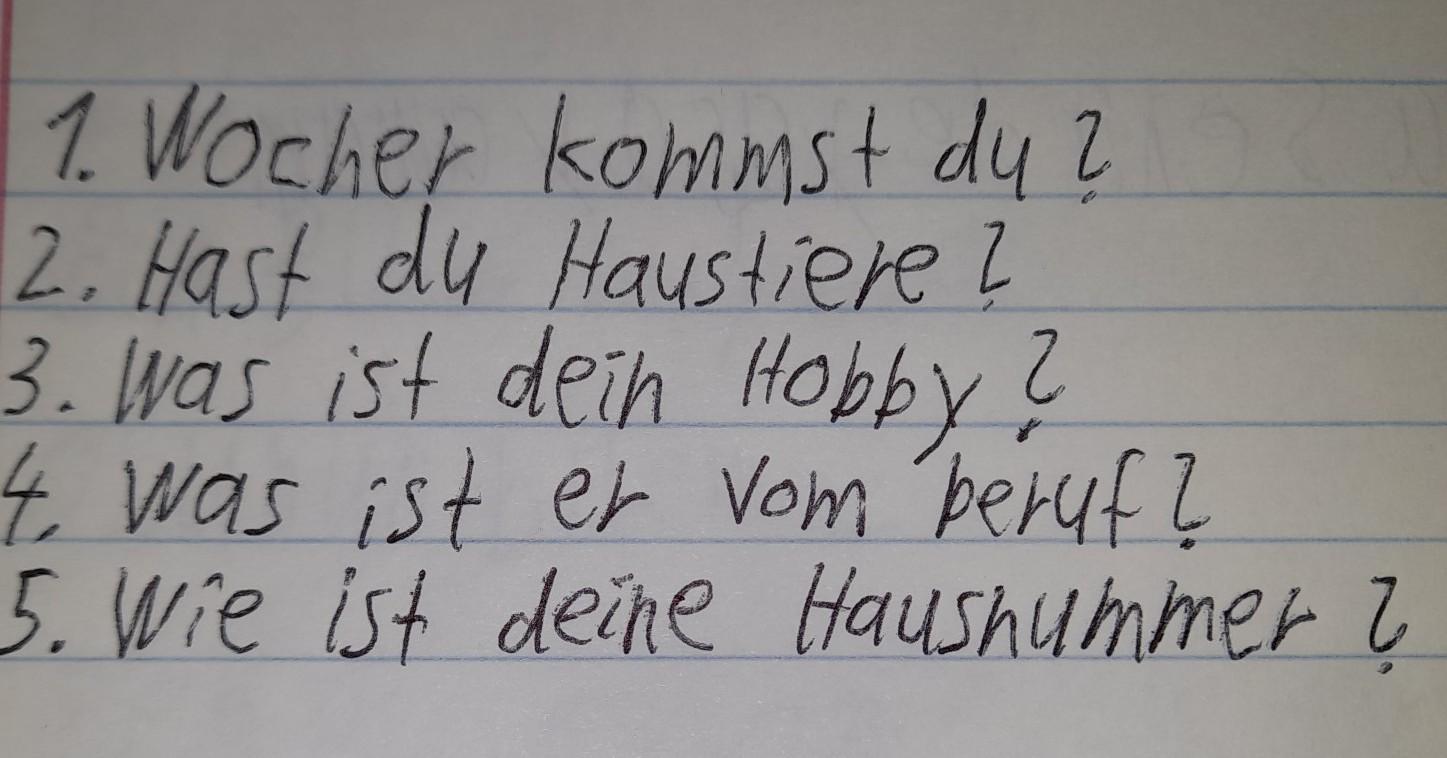 1. Wocher kommst du?
2. Hast du Haustiere?
3. Was ist dein Hobby?
4. Was ist er vom beruf?
5. Wie ist deine Hausnummer?